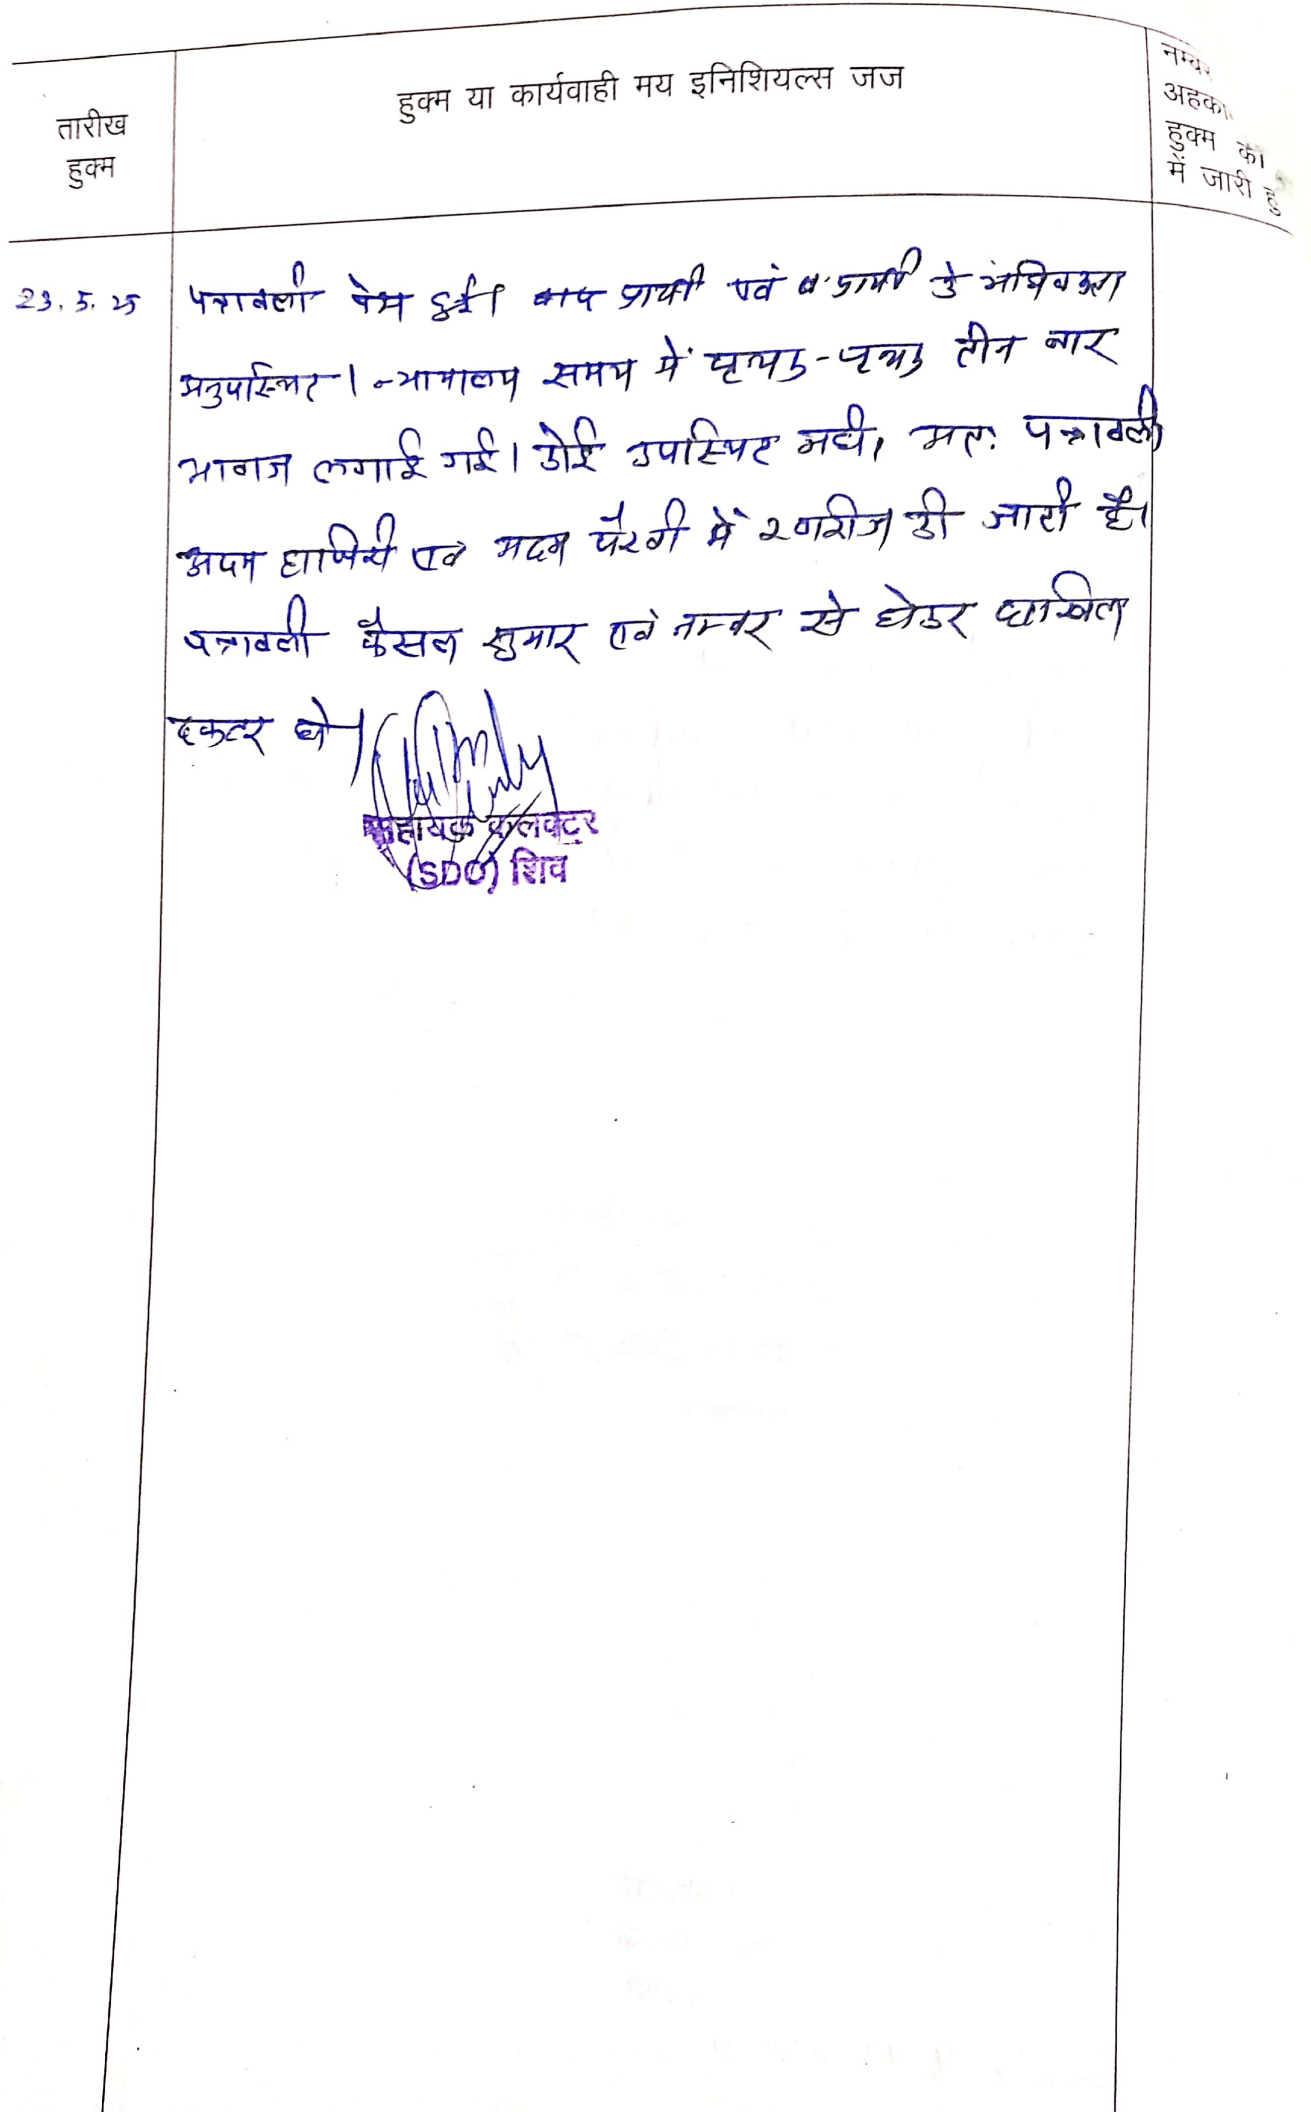 तारीख
हुक्म
हुक्म या कार्यवाही मय इनिशियल्स जज
नम्बर
अहका
हुक्म की
में जारी हु
23.5.25
पत्रावली पेश हुई। वाद प्रार्थी एवं अप्रार्थी के अधिवक्ता
अनुपस्थित। न्यायालय समय में पृथक-पृथक तीन बार
आवाज लगाई गई। कोई उपस्थित नहीं, अतः पत्रावली
अदम हाजिरी एवं अदम पैरवी में खारीज की जाती है।
पत्रावली फैसल शुमार एवं नम्बर से होकर दाखिल
दफ्तर हो।
सहायक कलक्टर
(SDO) शिव